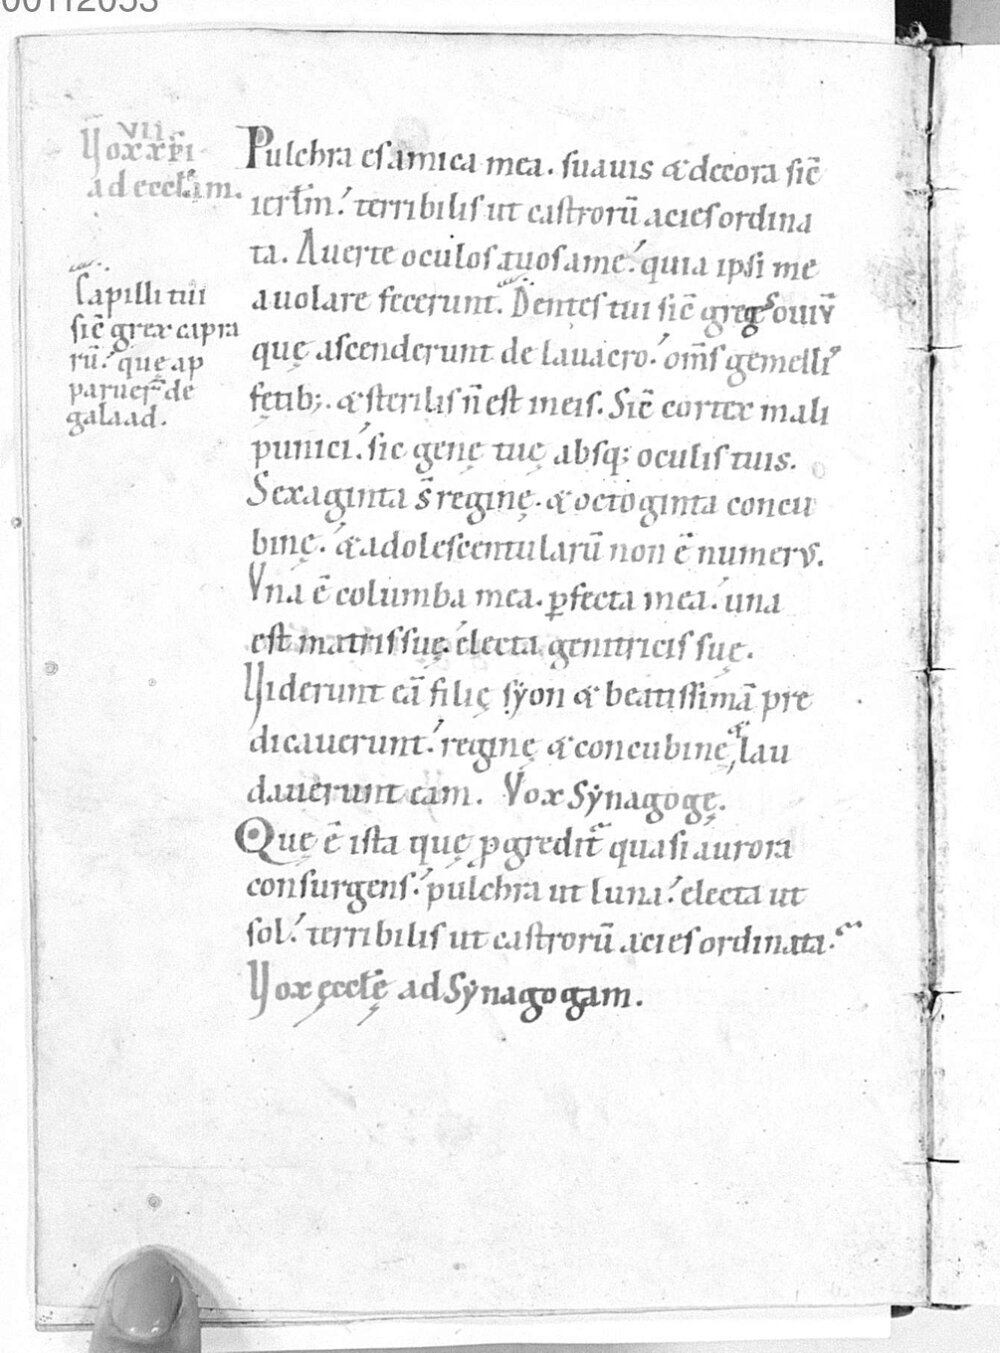 00112053
VII
Vox xp̄i
ad eccl̄am.
Pulchra es amica mea. suauis & decora sic̄
ierl̄m.' terribilis ut castrorū acies ordina
ta. Auerte oculos tuos a me.' quia ipsi me
auolare fecerunt. Dentes tui sic̄ greg&s ouiū
quę ascenderunt de lauacro.' om̄s gemelli'
fętib;. & sterilis n̄ est in eis. Sic̄ cortex mali
punici.' sic genę tuę absq; oculis tuis.
Sexaginta s̄ reginę. & octoginta concu
binę.' & adolescentularū non ē numerus.
Vna ē columba mea. ꝑfecta mea.' una
est matris suę. electa genitricis suę.
Viderunt eā filię syon & beatissimā pre
dicauerunt.' reginę & concubinę & lau
dauerunt eam. Vox Synagogę.
Quę ē ista quę ꝓgredit᷑ quasi aurora
consurgens.' pulchra ut luna.' electa ut
sol.' terribilis ut castrorū acies ordinata.
Vox ęccl̄ę ad Synagogam.
Capilli tui
sic̄ grex capra
rū.' quę ap
paruer̄ de
galaad.